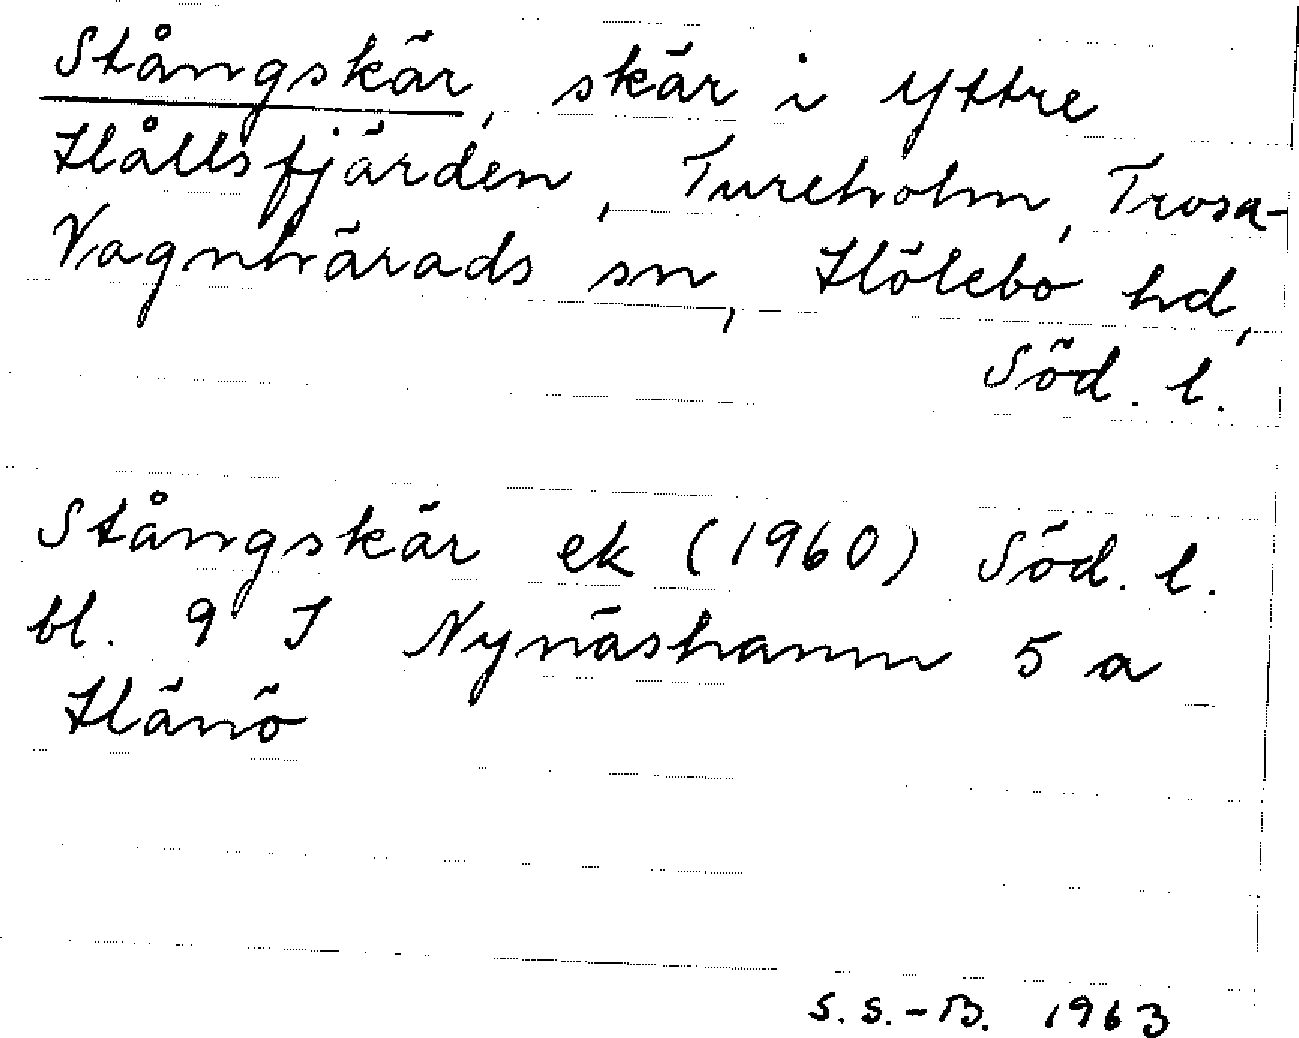 Stångskär, skär i Yttre
Hållsfjärden, Tureholm, Trosa-
Vagnhärads sn, Hölebo hd,
Söd. l.
Stångskär ek (1960) Söd. l.
bl. 9 I Nynäshamn 5 a
Hänö
S.S.-B. 1963